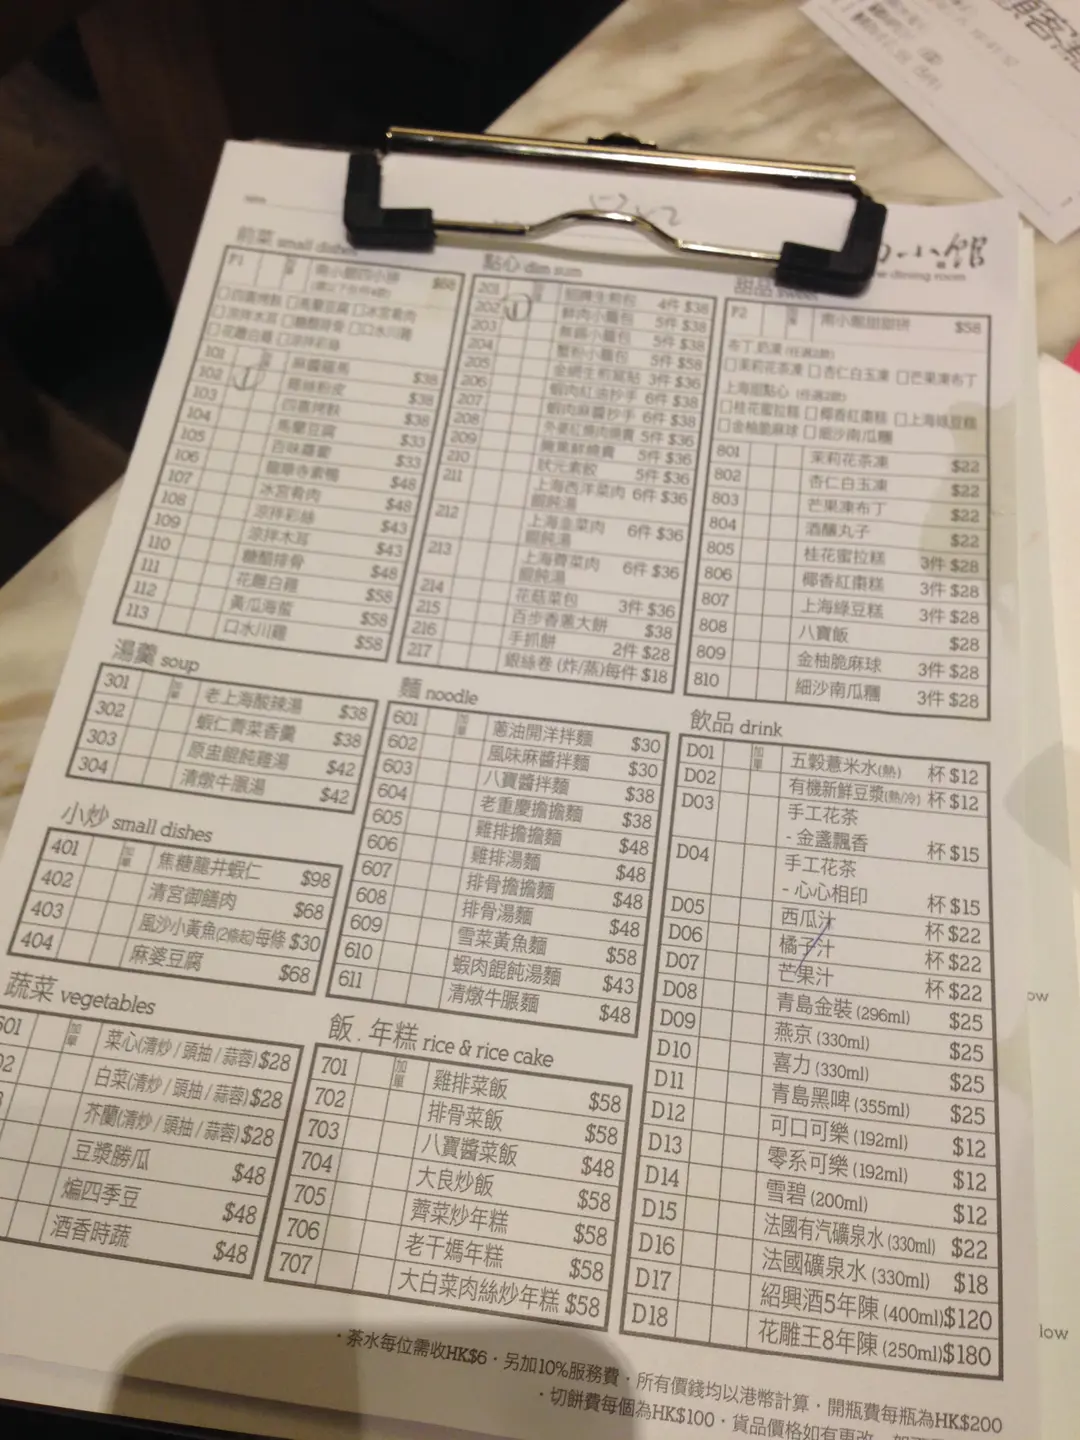 前菜 small dishes
P1 加單 南小館四小拼 $68
□四喜烤麩 □馬蘭豆腐 □冰宮肴肉
□涼拌木耳 □糖醋排骨 □口水川雞
□花雕白雞 □涼拌彩絲
101 加單 麻醬雞馬 $38
102 1 雞絲粉皮 $38
103 四喜烤麩 $38
104 馬蘭豆腐 $33
105 百味蘿蔔 $33
106 龍華寺素鴨 $48
107 冰宮肴肉 $48
108 涼拌彩絲 $43
109 涼拌木耳 $43
110 糖醋排骨 $48
111 花雕白雞 $58
112 黃瓜海蜇 $58
113 口水川雞 $58
湯羹 soup
301 加單 老上海酸辣湯 $38
302 蝦仁薺菜香羹 $38
303 原盅餛飩雞湯 $42
304 清燉牛𦟌湯 $42
小炒 small dishes
401 加單 焦糖龍井蝦仁 $98
402 清宮御饍肉 $68
403 風沙小黃魚(2條起)每條 $30
404 麻婆豆腐 $68
蔬菜 vegetables
501 加單 菜心(清炒 / 頭抽 / 蒜蓉) $28
02 白菜(清炒 / 頭抽 / 蒜蓉) $28
芥蘭(清炒 / 頭抽 / 蒜蓉) $28
豆漿勝瓜 $48
煸四季豆 $48
酒香時蔬 $48
點心 dim sum
201 加單 招牌生煎包 4件 $38
202 1 鮮肉小籠包 5件 $38
203 無錫小籠包 5件 $38
204 蟹粉小籠包 5件 $58
205 金網生煎鍋貼 3件 $36
206 蝦肉紅油抄手 6件 $38
207 蝦肉麻醬抄手 6件 $38
208 外婆紅燒肉燒賣 5件 $36
209 鮮燒賣 5件 $36
210 狀元素餃 5件 $36
211 上海西洋菜肉餛飩湯 6件 $36
212 上海韭菜肉餛飩湯 6件 $36
213 上海薺菜肉餛飩湯 6件 $36
214 花菇菜包 3件 $36
215 百步香蔥大餅 $38
216 手抓餅 2件 $28
217 銀絲卷 (炸/蒸)每件 $18
麵 noodle
601 加單 蔥油開洋拌麵 $30
602 風味麻醬拌麵 $30
603 八寶醬拌麵 $38
604 老重慶擔擔麵 $38
605 雞排擔擔麵 $48
606 雞排湯麵 $48
607 排骨擔擔麵 $48
608 排骨湯麵 $48
609 雪菜黃魚麵 $58
610 蝦肉餛飩湯麵 $43
611 清燉牛𦟌麵 $48
飯 . 年糕 rice & rice cake
701 加單 雞排菜飯 $58
702 排骨菜飯 $58
703 八寶醬菜飯 $48
704 大良炒飯 $58
705 薺菜炒年糕 $58
706 老干媽年糕 $58
707 大白菜肉絲炒年糕 $58
小館
dining room
甜品 sweet
P2 加單 南小館甜甜拼 $58
布丁.奶凍 (任選2款)
□茉莉花茶凍 □杏仁白玉凍 □芒果凍布丁
上海甜點心 (任選2款)
□桂花蜜拉糕 □椰香紅棗糕 □上海綠豆糕
□金柚脆麻球 □細沙南瓜糰
801 茉莉花茶凍 $22
802 杏仁白玉凍 $22
803 芒果凍布丁 $22
804 酒釀丸子 $22
805 桂花蜜拉糕 3件 $28
806 椰香紅棗糕 3件 $28
807 上海綠豆糕 3件 $28
808 八寶飯 $28
809 金柚脆麻球 3件 $28
810 細沙南瓜糰 3件 $28
飲品 drink
D01 加單 五穀薏米水(熱) 杯 $12
D02 有機新鮮豆漿(熱/冷) 杯 $12
D03 手工花茶
- 金盞飄香 杯 $15
D04 手工花茶
- 心心相印 杯 $15
D05 西瓜汁 杯 $22
D06 橘子汁 杯 $22
D07 芒果汁 杯 $22
D08 青島金裝 (296ml) $25
D09 燕京 (330ml) $25
D10 喜力 (330ml) $25
D11 青島黑啤 (355ml) $25
D12 可口可樂 (192ml) $12
D13 零系可樂 (192ml) $12
D14 雪碧 (200ml) $12
D15 法國有汽礦泉水 (330ml) $22
D16 法國礦泉水 (330ml) $18
D17 紹興酒5年陳 (400ml) $120
D18 花雕王8年陳 (250ml) $180
·茶水每位需收HK$6·另加10%服務費·所有價錢均以港幣計算·開瓶費每瓶為HK$200
·切餅費每個為HK$100·貨品價格如有更改
ow
low